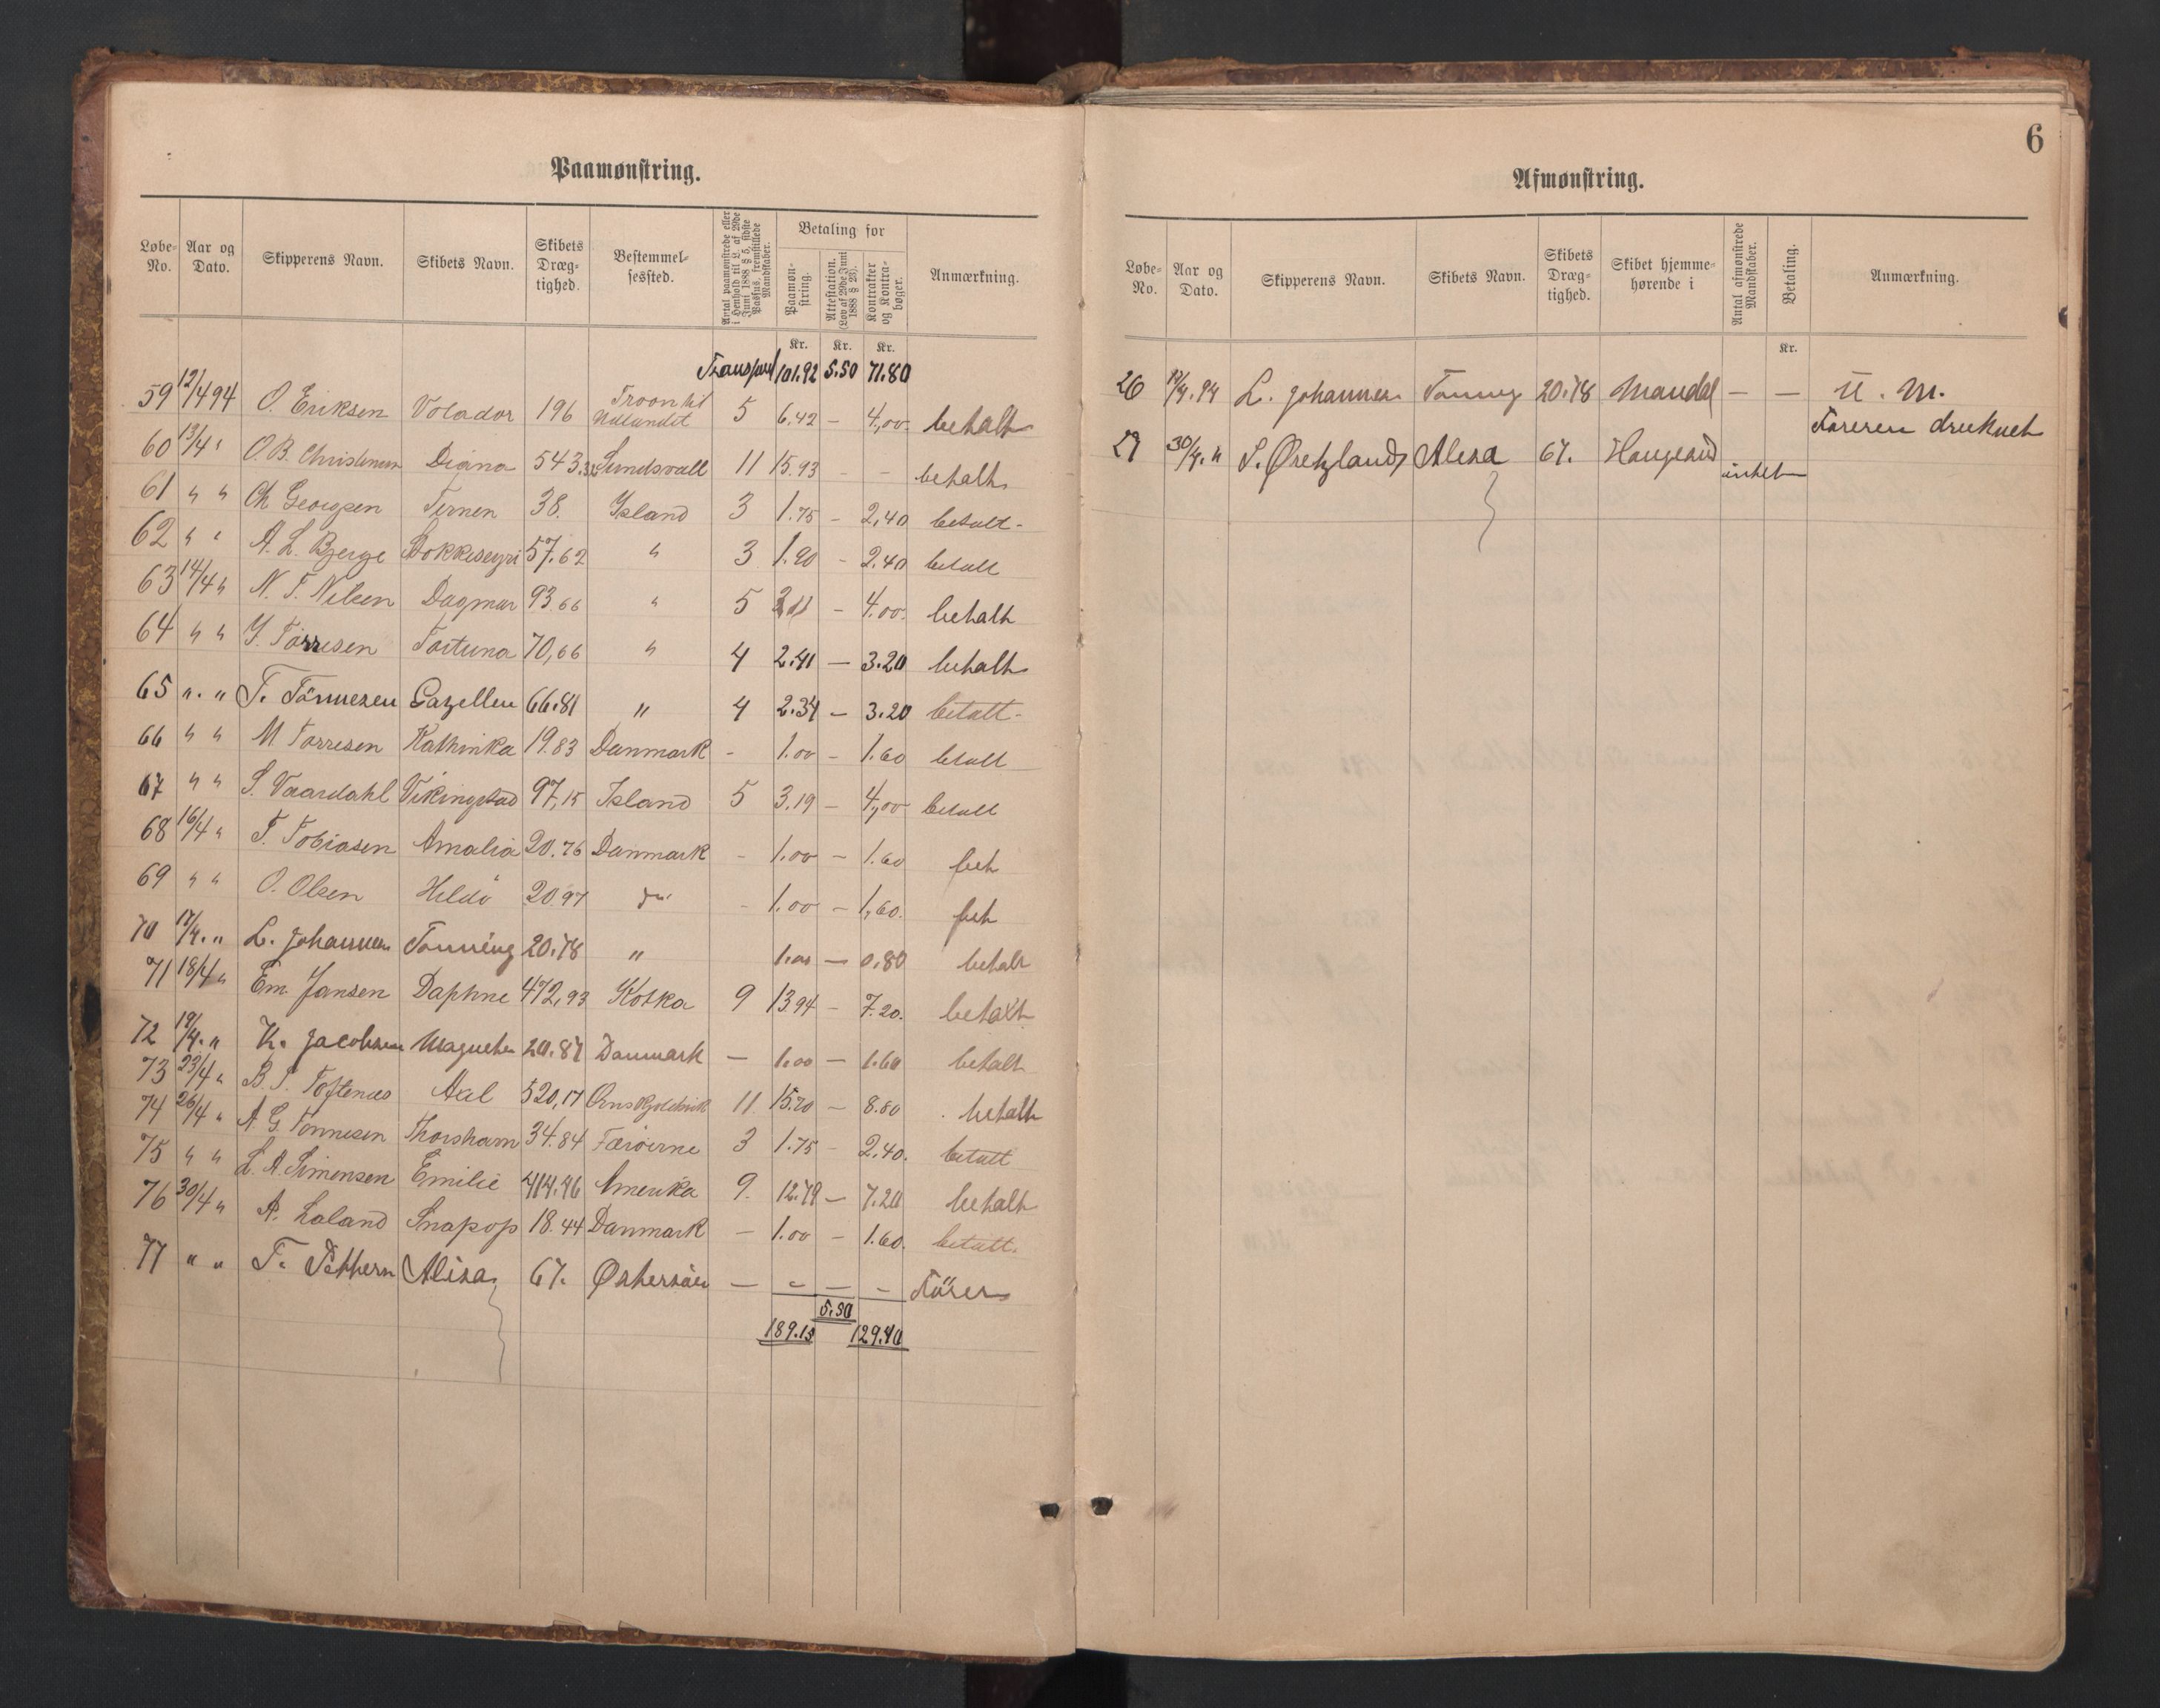 6
Paamønstring.
Løbe-No. Aar og Dato. Skipperens Navn. Skibets Navn. Skibets Dræg-tighed. Bestemmel-sessted. Antal paamønstrede eller i Henhold til L. af 29de Juni 1888 § 5, sidste Passus, fremstillede Mandskaber. Betaling for Paamøn-string. Attestation. (Lov af 29de Juni 1888 § 28). Kontrakter og Kontra-bøger. Anmærkning.
Kr. Kr. Kr.
Transport 101.92 5.50 71.80
59 12/4 94 O. Eriksen Volador 196 Troon til Udlandet 5 6.42 – 4,00 betalt
60 13/4 " O. B. Christensen Diana 543.32 Sundsvall 11 15.93 – – betalt
61 " " Ch Georgsen Ternen 38. Island 3 1.75 – 2,40 betalt -
62 " " A. L. Berge 57.62 " 3 1.90 – 2.40 betalt
63 14/4 " N. T. Nilsen Dagmar 93.66 " 5 – 4.00. betalt
64 " " Y. Tørresen Fortuna 70,66 " 4 2.41 – 3.20 betalt
65 " " T. Tönnesen Gazellen 66.81 " 4 2.34 – 3.20 betalt -
66 " " M Tørresen Kathinka 19.83 Danmark - 1.00 – 1.60 betalt
67 " " S. Vaardahl Vikingstad 97,15 Island 5 3.19 – 4,00 betalt
68 16/4 " T. Tobiasen Amalia 20.76 Danmark - 1.00 – 1.60 bet
69 " " O. Olsen Hildö 20.97 do - 1.00 – 1,60. bet
70 17/4. " L. Johannesen Tonning 20.78 " 1.00 – 0.80 betalt
71 18/4 " Em. Jansen Daphne 472,93 Kotka 9 13.94 – 7.20. betalt
72 19/4. " K. Jacobsen Magneten 20.87 Danmark – 1.00 – 1.60 betalt
73 23/4 " B. T. Toftenæs Axel 520,17 11 15.20 – 8.80 betalt
74 26/4 " A G. Tønnesen Thorshavn 34.84 Færöerne 3 1.75 – 2.40. betalt
75 " " L. A. Simonsen Emilie 414.46 Amerika 9. 12.79 – 7.20 betalt
76 30/4 " A. Laland Snapop 18.44 Danmark – 1.00 – 1.60. betalt.
77 " " T. Alisa 67. Østersöen – – – – Förer
5.50
189.15 129.40
Afmønstring.
Løbe-No. Aar og Dato. Skipperens Navn. Skibets Navn. Skibets Dræg-tighed. Skibet hjemme-hørende i Antal afmønstrede Mandskaber. Betaling. Anmærkning.
Kr.
26 17/4. 94 L. Johannesen Tonning 20.78 Mandal – – U. M.
Föreren druknet
27 30/4. " Alisa 67. Haugesund intet